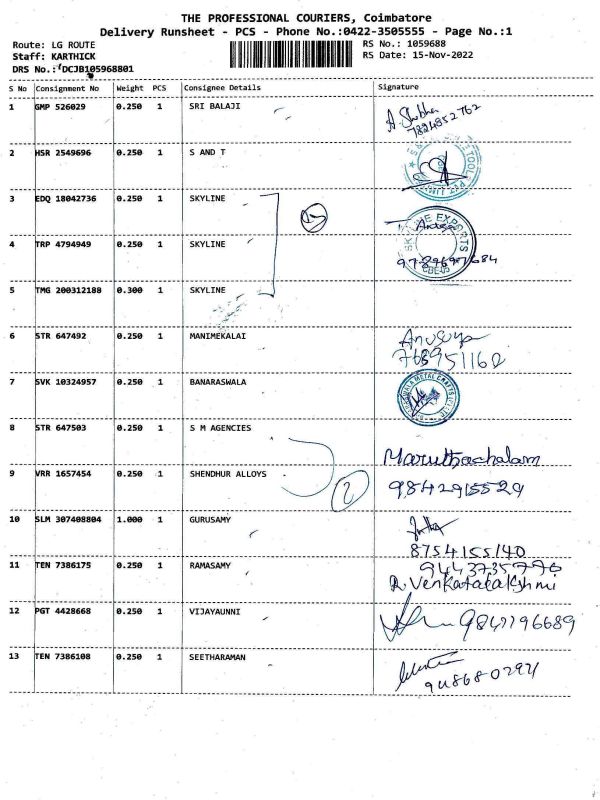 THE PROFESSIONAL COURIERS, Coimbatore
Delivery Runsheet - PCS - Phone No.:0422-3505555 - Page No.:1
Route: LG ROUTE
RS No.: 1059688
Staff: KARTHICK
RS Date: 15-Nov-2022
DRS No.: DCJB105968801
S No Consignment No Weight PCS Consignee Details Signature
1 GMP 526029 0.250 1 SRI BALAJI
7824852762
2 HSR 2549696 0.250 1 S AND T
3 EDQ 18042736 0.250 1 SKYLINE
SKYLINE EXPORTS
CBE-05
4 TRP 4794949 0.250 1 SKYLINE
5 TMG 200312188 0.300 1 SKYLINE
6 STR 647492 0.250 1 MANIMEKALAI
7 SVK 10324957 0.250 1 BANARASWALA
8 STR 647503 0.250 1 S M AGENCIES
Maruthachalam
9 VRR 1657454 0.250 1 SHENDHUR ALLOYS
2
9842915529
10 SLM 307408804 1.000 1 GURUSAMY
8754155140
11 TEN 7386175 0.250 1 RAMASAMY
9443735770
R. Venkatalakshmi
12 PGT 4428668 0.250 1 VIJAYAUNNI
13 TEN 7386108 0.250 1 SEETHARAMAN